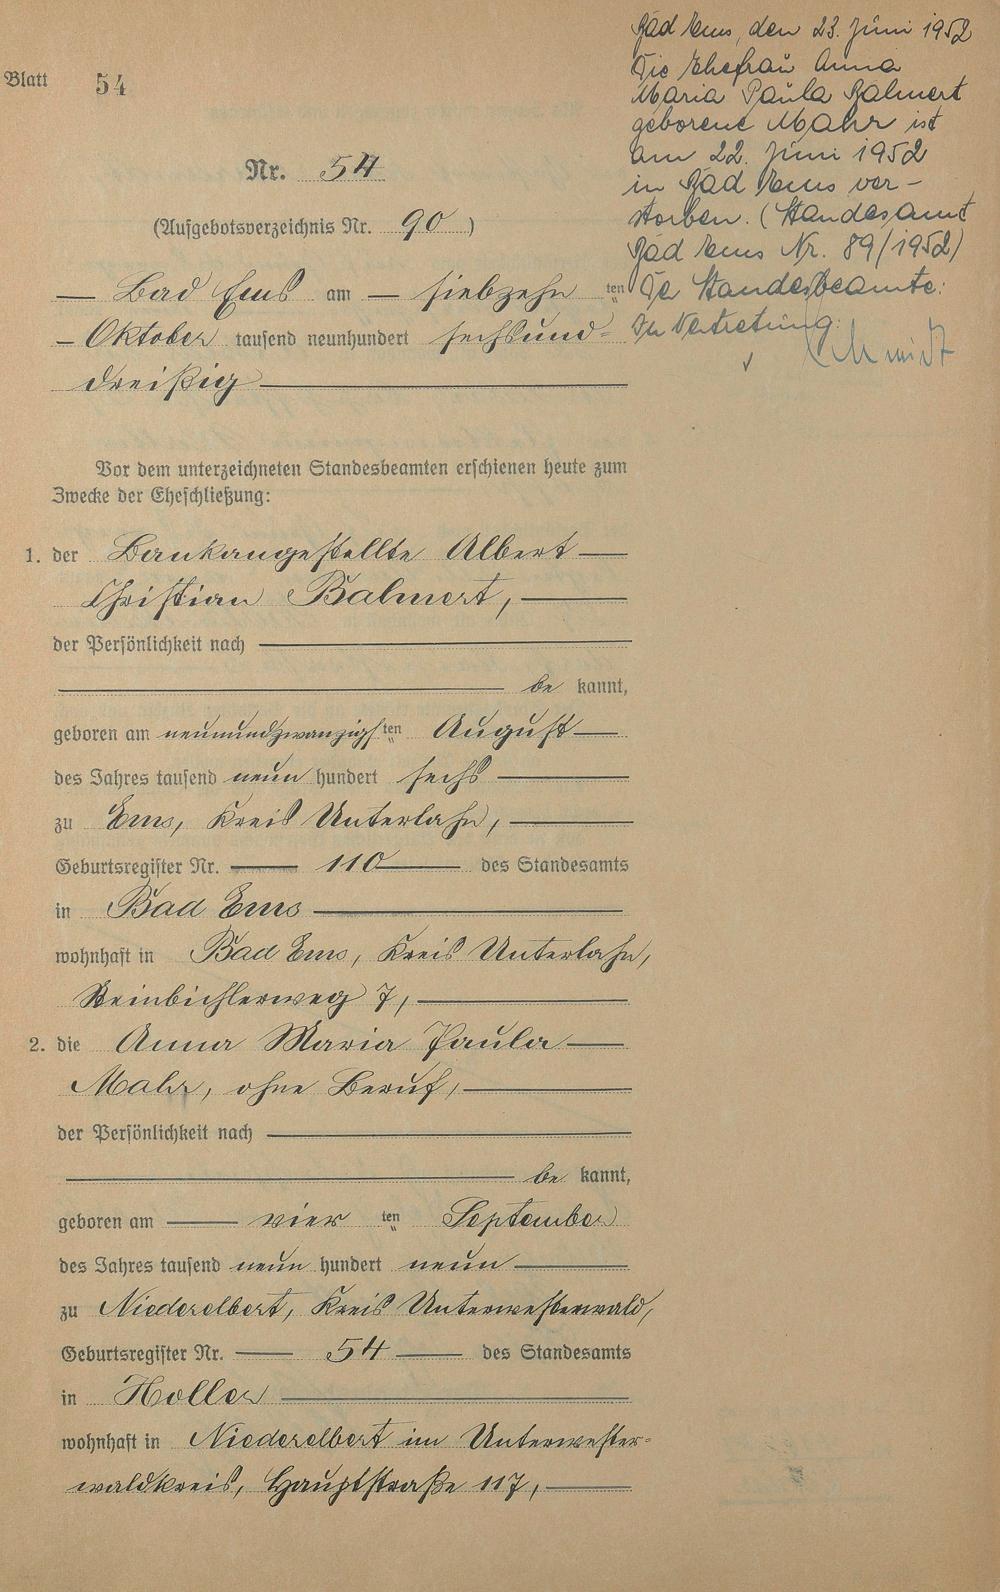 Blatt 54
Nr. 54
(Aufgebotsverzeichnis Nr. 90)
— Bad Ems am — siebzehnten
— Oktober tausend neunhundert sechsund-
dreißig —
Vor dem unterzeichneten Standesbeamten erschienen heute zum
Zwecke der Eheschließung:
1. der Bankangestellte Albert —
Christian Balmert, —
der Persönlichkeit nach —
— be kannt,
geboren am neunundzwanzigsten August —
des Jahres tausend neun hundert sechs —
zu Ems, Kreis Unterlahn, —
Geburtsregister Nr. — 110 — des Standesamts
in Bad Ems —
wohnhaft in Bad Ems, Kreis Unterlahn,
Steinbichlerweg 7, —
2. die Anna Maria Paula —
Mahr, ohne Beruf, —
der Persönlichkeit nach —
— be kannt,
geboren am — vierten September
des Jahres tausend neun hundert neun —
zu Niederelbert, Kreis Unterwesterwald,
Geburtsregister Nr. — 54 — des Standesamts
in Holler —
wohnhaft in Niederelbert im Unterwester-
waldkreis, Hauptstraße 117, —
Bad Ems, den 23. Juni 1952
Die Ehefrau Anna
Maria Paula Balmert
geborene Mahr ist
am 22. Juni 1952
in Bad Ems ver-
storben. (Standesamt
Bad Ems Nr. 89/1952)
Der Standesbeamte:
In Vertretung:
Schmidt